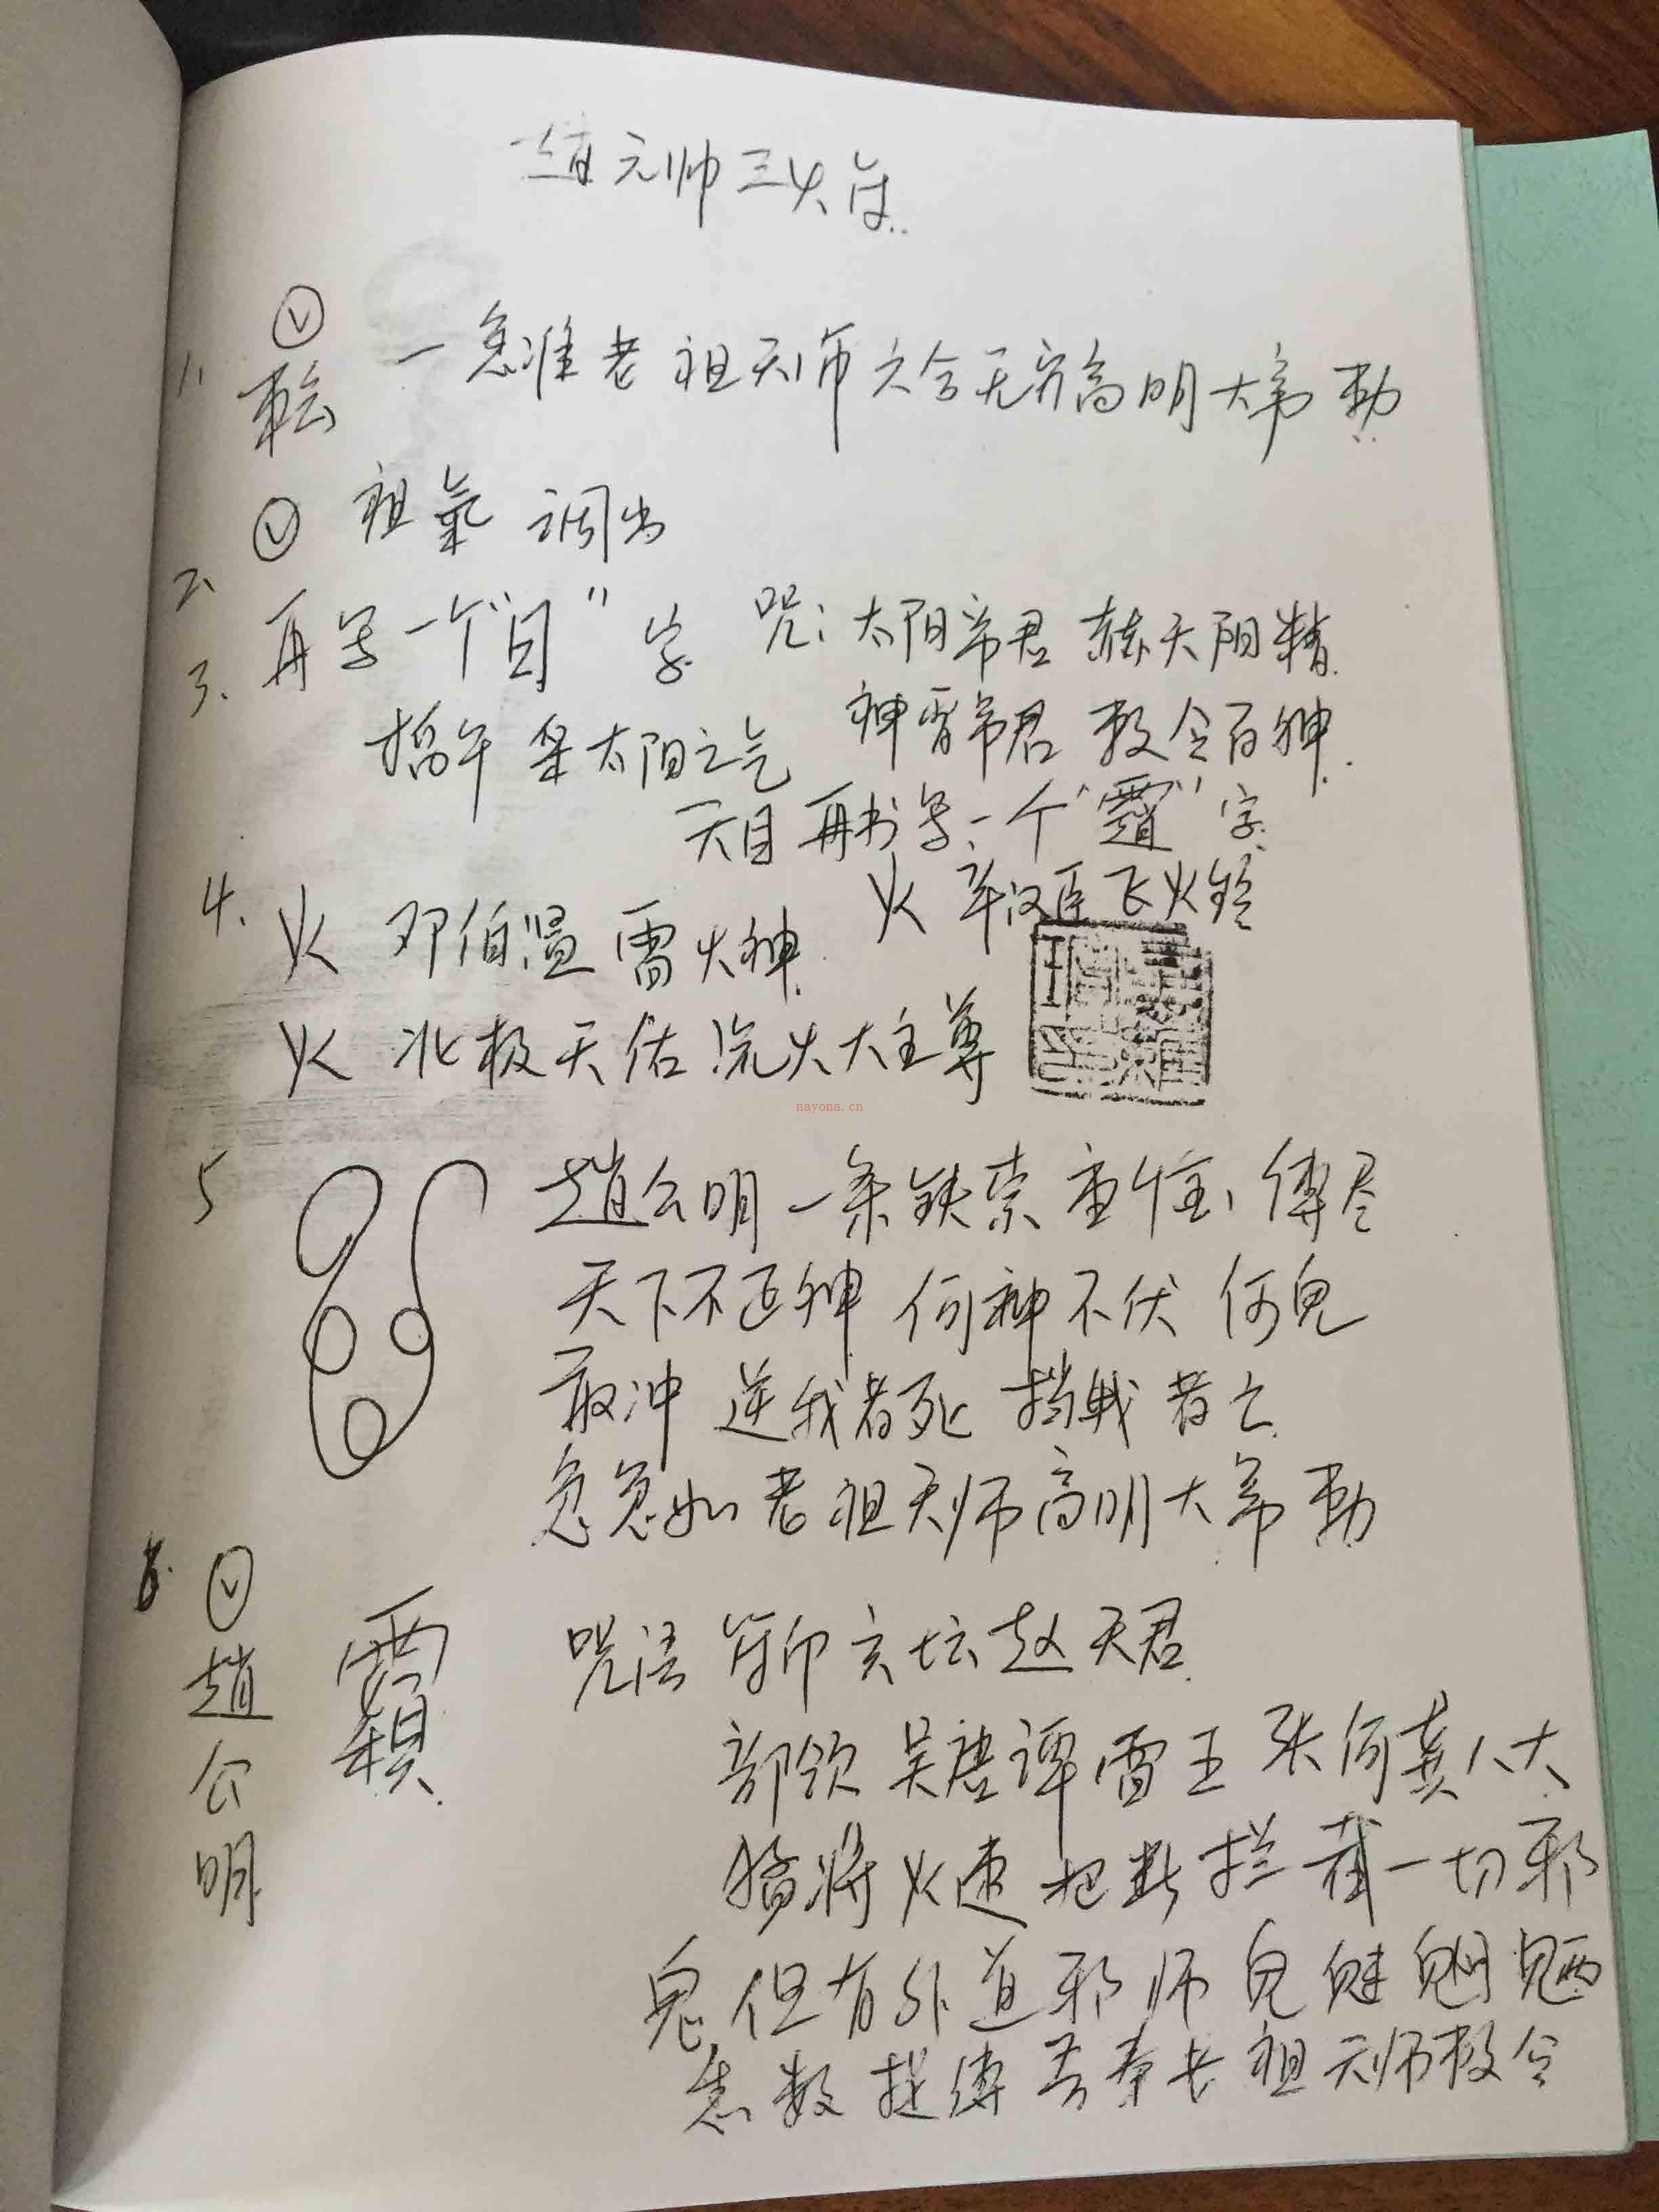 趙元帅三火符
1. 一急准老祖天师六合无穷高明大帝勅
2、 祖氣 调出
3、 再写一个“目”字 咒：太阳帝君 赫天阳精
掐午 采太阳之气 神霄帝君 敕令百神
天目 再书写一个“”字
4、 火 邓伯温 雷火神 火 辛汉臣 飞火铃
火 北极天佑 流火大主尊
nayona.cn
5 趙公明一条铁索重 缚尽
天下不正神 何神不伏 何鬼
敢冲 逆我者死 挡我者亡
急急如老祖天师高明大帝勅
6. 趙公明 咒语 玄坛赵天君
部领 吴唐谭雷王张何龚八大
猛将火速把断拦截一切邪
鬼但有外道邪师鬼魅魍魉
悉数捉缚 奉老祖天师敕令